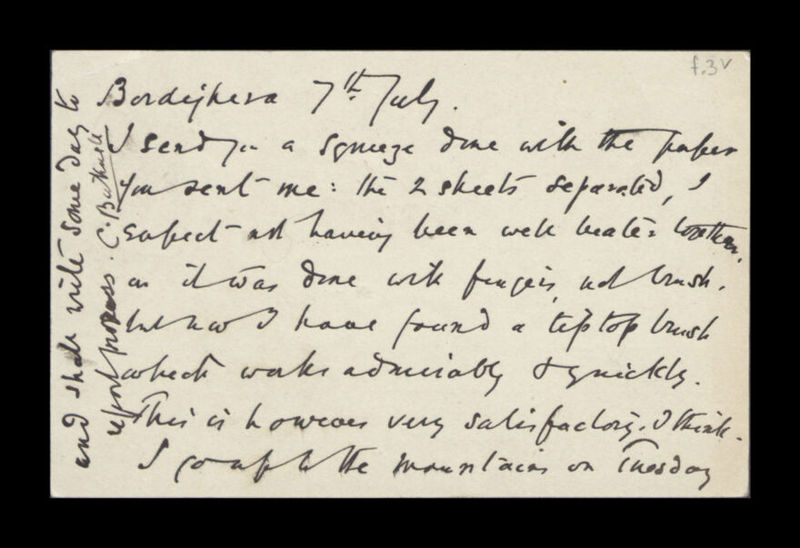 f.3v
Bordighera 7th July.
I send you a squeeze done with the paper
you sent me: the 2 sheets separated, I
expect not having been well beaten together.
as it was done with fingers, not brush.
but now I have found a tip top brush
which works admirably & quickly.
This is however very satisfactory. I think.
I go up to the mountains on Tuesday
and shall write some day to
report progress. C. Bicknell